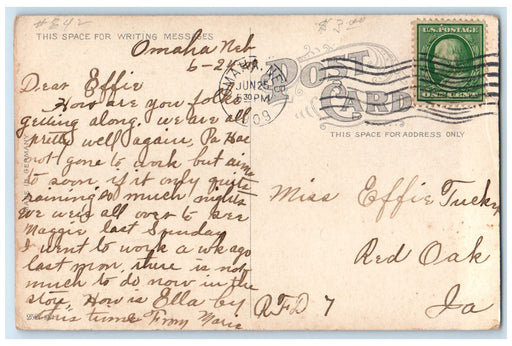 #842
$3.00
THIS SPACE FOR WRITING MESSAGES
Omaha Neb
6-24
Dear Effie
How are you folks
getting along. we are all
pretty well again, Pa has
not gone to work but aims
to soon, if it only quits
raining so much nights
we were all over to see
Maggie last Sunday
I went to work a wk ago
last mon, there is not
much to do now in the
store, How is Ella by
this time From Marie
OMAHA, NEBR.
JUN 25
5 30 PM
09
POST
CARD
U.S. POSTAGE
ONE CENT
THIS SPACE FOR ADDRESS ONLY
Miss Effie Tucker
Red Oak
RFD 7 Ia
GERMANY